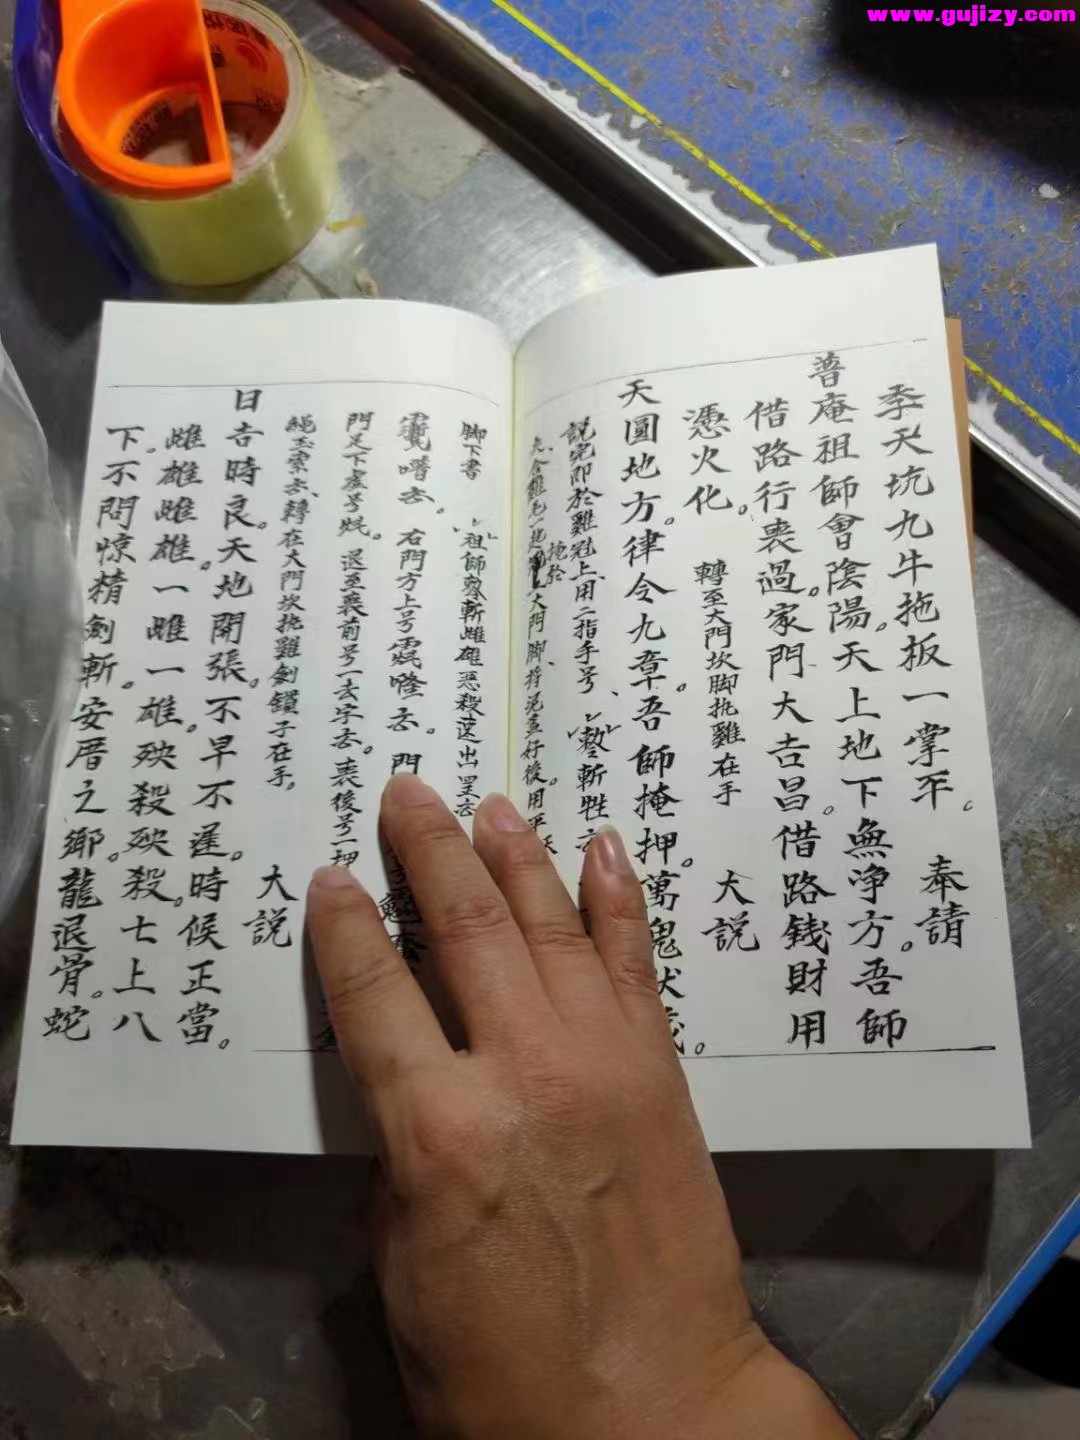 www.gujizy.com
季天坑九牛拖板一掌平。 奉請
普庵祖師會陰陽。天上地下無净方。吾師
借路行丧過。家門大吉昌。借路錢財用
憑火化。 轉至大門坎脚扰雞在手 大説
天圓地方。律令九章。吾師掩押。萬鬼伏
説完即於雞冠上用二指手号、 斬牲
大門脚、将泥盖好後。用平
掩於
脚下書 祖師 斬雌雄惡殺速出罡去
去。右門方上号 去。門
門足下虚号 。退至丧前号一去字去。丧後号一押
繩玉索去、轉在大門坎扰雞劍鎖子在手。 大説
日吉時良。天地開張。不早不遲。時候正當。
雌雄雌雄。一雌一雄。殃殺殃殺。七上八
下。不問惊精劍斬。安厝之鄉。龍退骨。蛇